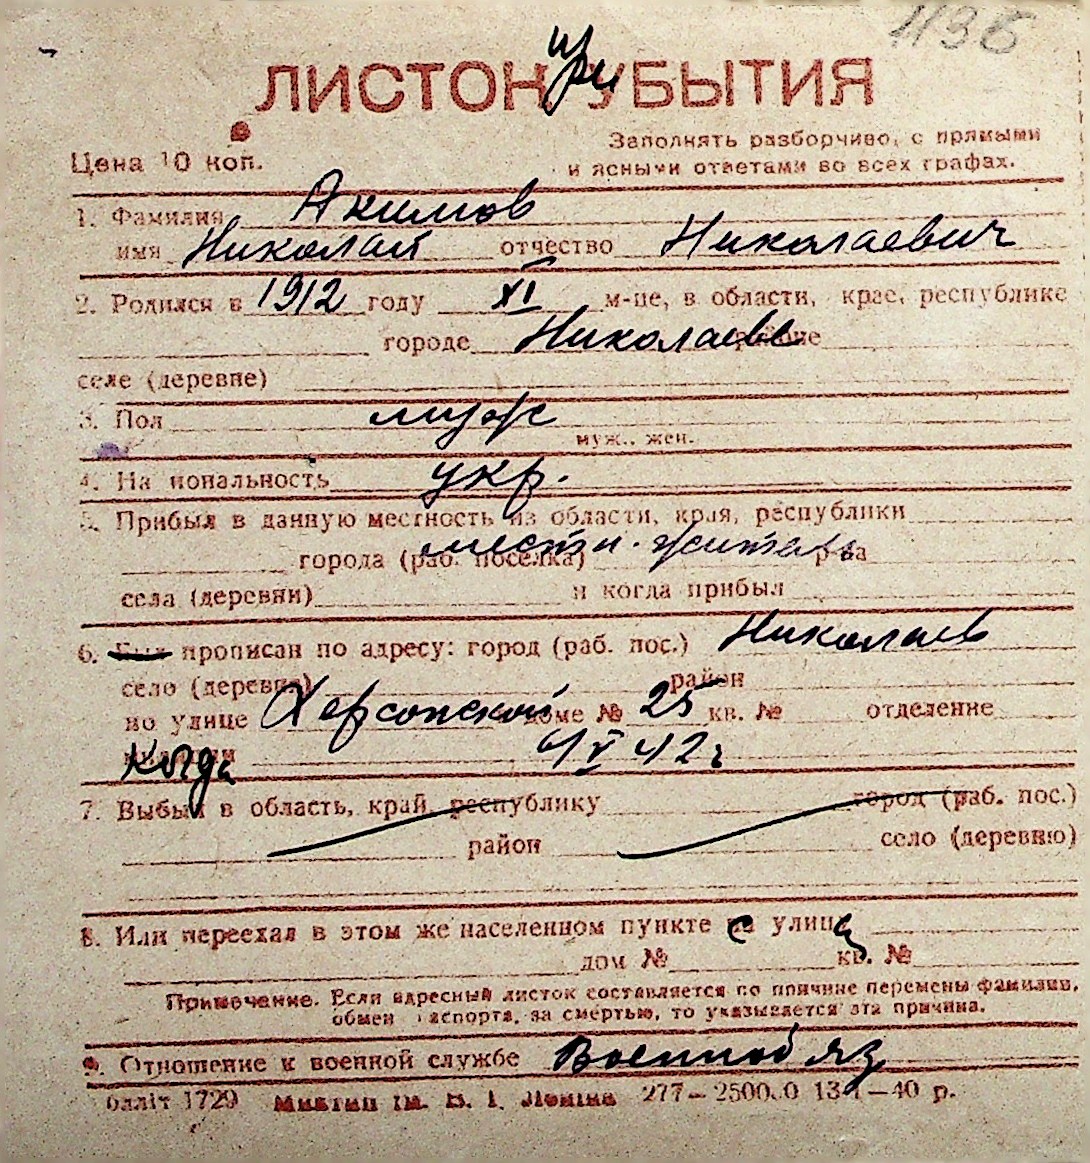 1136
при
ЛИСТОК УБЫТИЯ
Цена 10 коп.
Заполнять разборчиво, с прямыми
и ясными ответами во всех графах.
1. Фамилия Акимов
имя Николай отчество Николаевич
2. Родился в 1912 году XI м-це, в области, крае, республике
городе Николаеве районе
селе (деревне)
3. Пол муж
муж., жен.
4. На иональность укр.
5. Прибыл в данную местность из области, края, республики
местн. житель
города (раб. поселка) р-на
села (деревни) и когда прибыл
6. Был прописан по адресу: город (раб. пос.) Николаев
село (деревня) район
по улице Херсонской доме № 25 кв. № отделение
Когда 4/V 42 г
7. Выбыл в область, край республику город (раб. пос.)
район село (деревню)
8. Или переехал в этом же населенном пункте с улицы
дом № кв. №
Примечание. Если адресный листок составляется по причине перемены фамилии,
обмен паспорта, за смертью, то указывается эта причина.
9. Отношение к военной службе Военнобяз
блліт 1729 ім. В. І. Леніна 277—2500.0 13 —40 р.